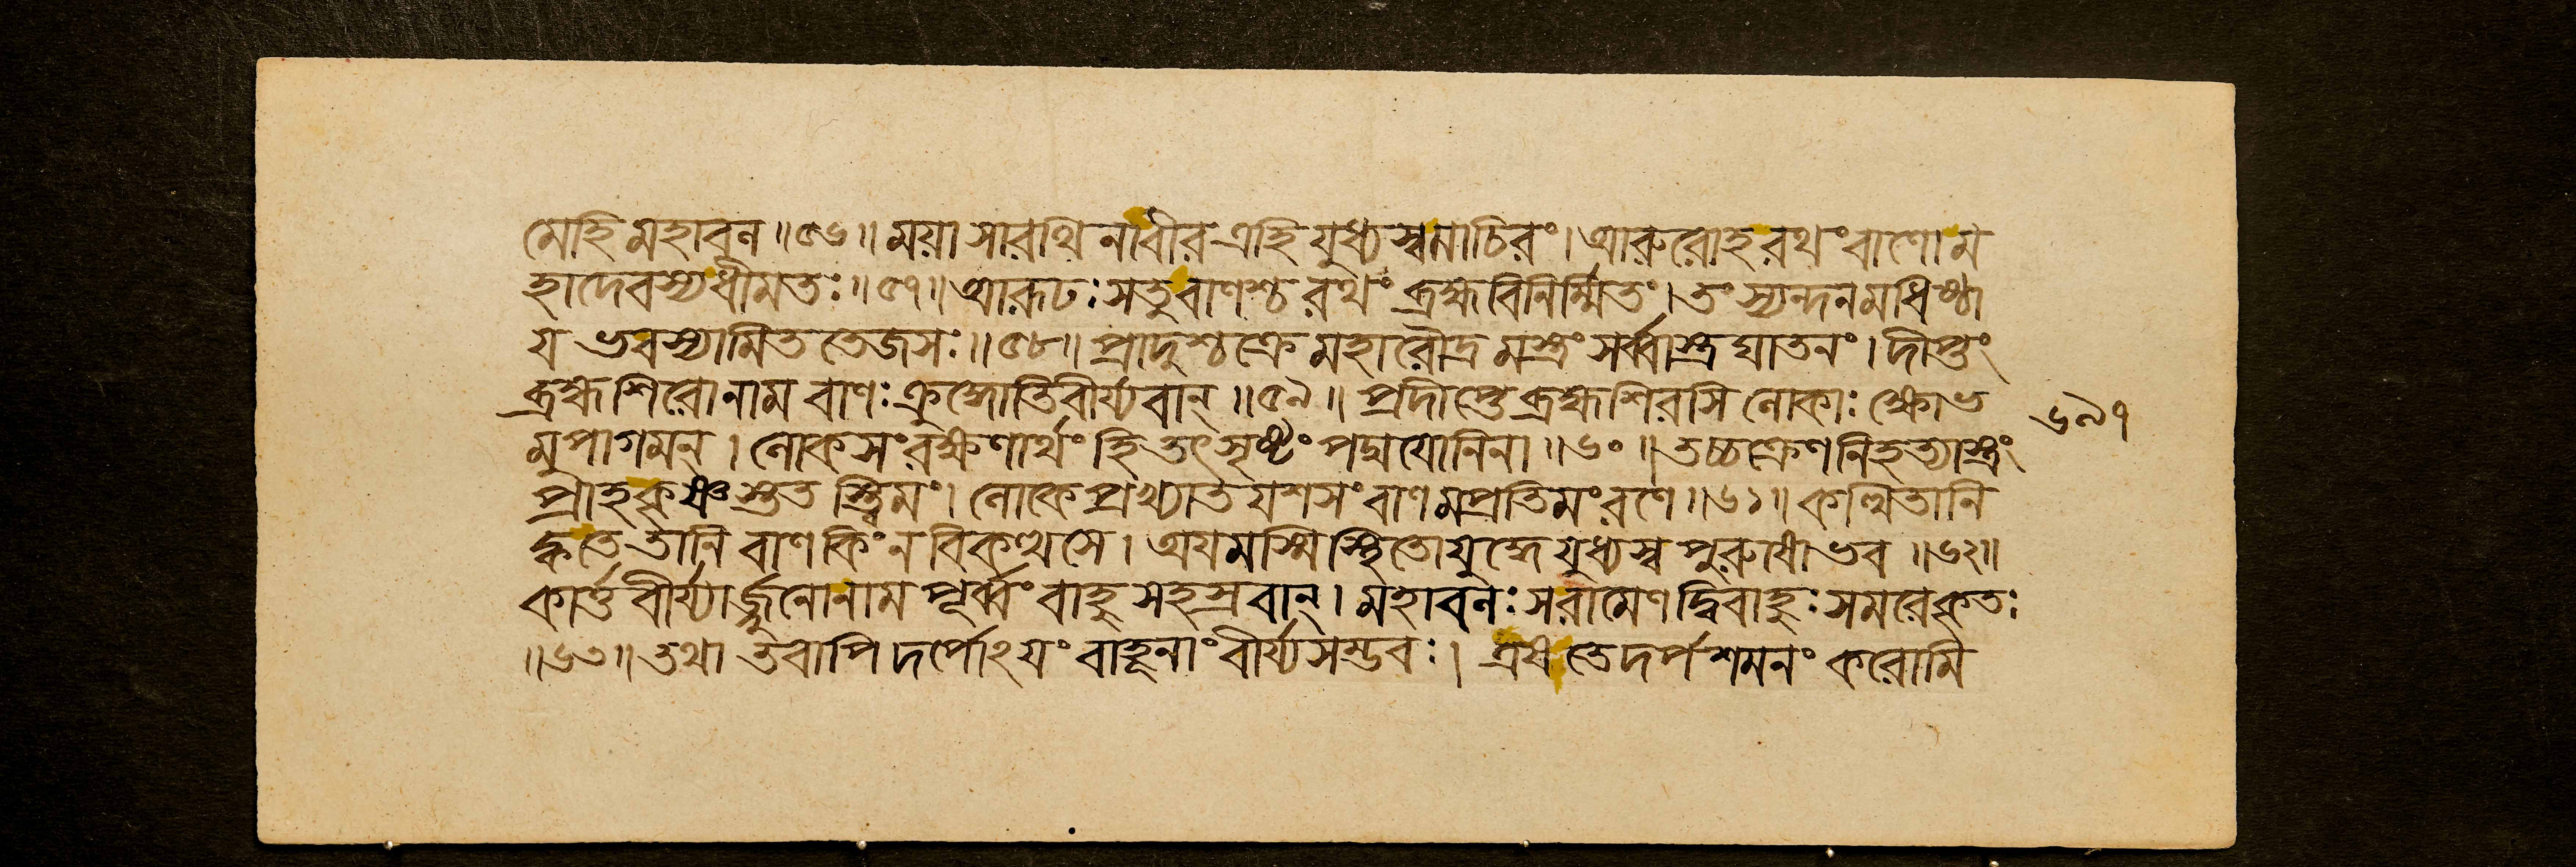 মেহি মহাবল ॥৫৬॥ ময়া সারথিনা বীর এহি যুধ্যস্ব মাচিরং। আরুরোহ রথং বাণো ম
হাদেবস্য ধীমতঃ ॥৫৭॥ আরূঢঃ স তু বাণশ্চ রথং ব্রহ্মবিনির্ম্মিতং। তং স্যন্দনমধিষ্ঠা
য ভবস্যামিততেজসঃ ॥৫৮॥ প্রাদুশ্চক্রে মহারৌদ্রমস্ত্রং সর্ব্বাস্ত্রঘাতনং। দীপ্তং
ব্রহ্মশিরো নাম বাণঃ ক্রুদ্ধোতিবীর্য্যবান্ ॥৫৯॥ প্রদীপ্তে ব্রহ্মশিরসি লোকাঃ ক্ষোভ
মুপাগমন্। লোকসংরক্ষণার্থং হি তৎসৃষ্টং পদ্মযোনিনা ॥৬০॥ তচ্চক্রেণ নিহত্যাস্ত্রং
প্রাহ কৃষ্ণস্তরস্বিনং। লোকে প্রখ্যাতযশসং বাণমপ্রতিমং রণে ॥৬১॥ কত্থিতানি
ক্ব তে তানি বাণ কিং ন বিকত্থসে। অয়মস্মি স্থিতো যুদ্ধে যুধ্যস্ব পুরুষো ভব ॥৬২॥
কার্ত্তবীর্য্যার্জ্জুনো নাম পূর্ব্বং বাহুসহস্রবান্। মহাবলঃ স রামেণ দ্বিবাহুঃ সমরে কৃতঃ
॥৬৩॥ তথা তবাপি দর্পোঽয়ং বাহূনাং বীর্য্যসম্ভবঃ। এষ তে দর্পশমনং করোমি
৬৯৭